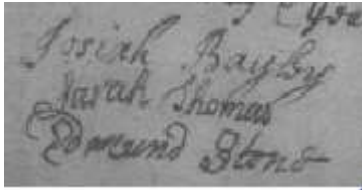 Josiah Bayley
Sarah Thomas
Edmund Stone